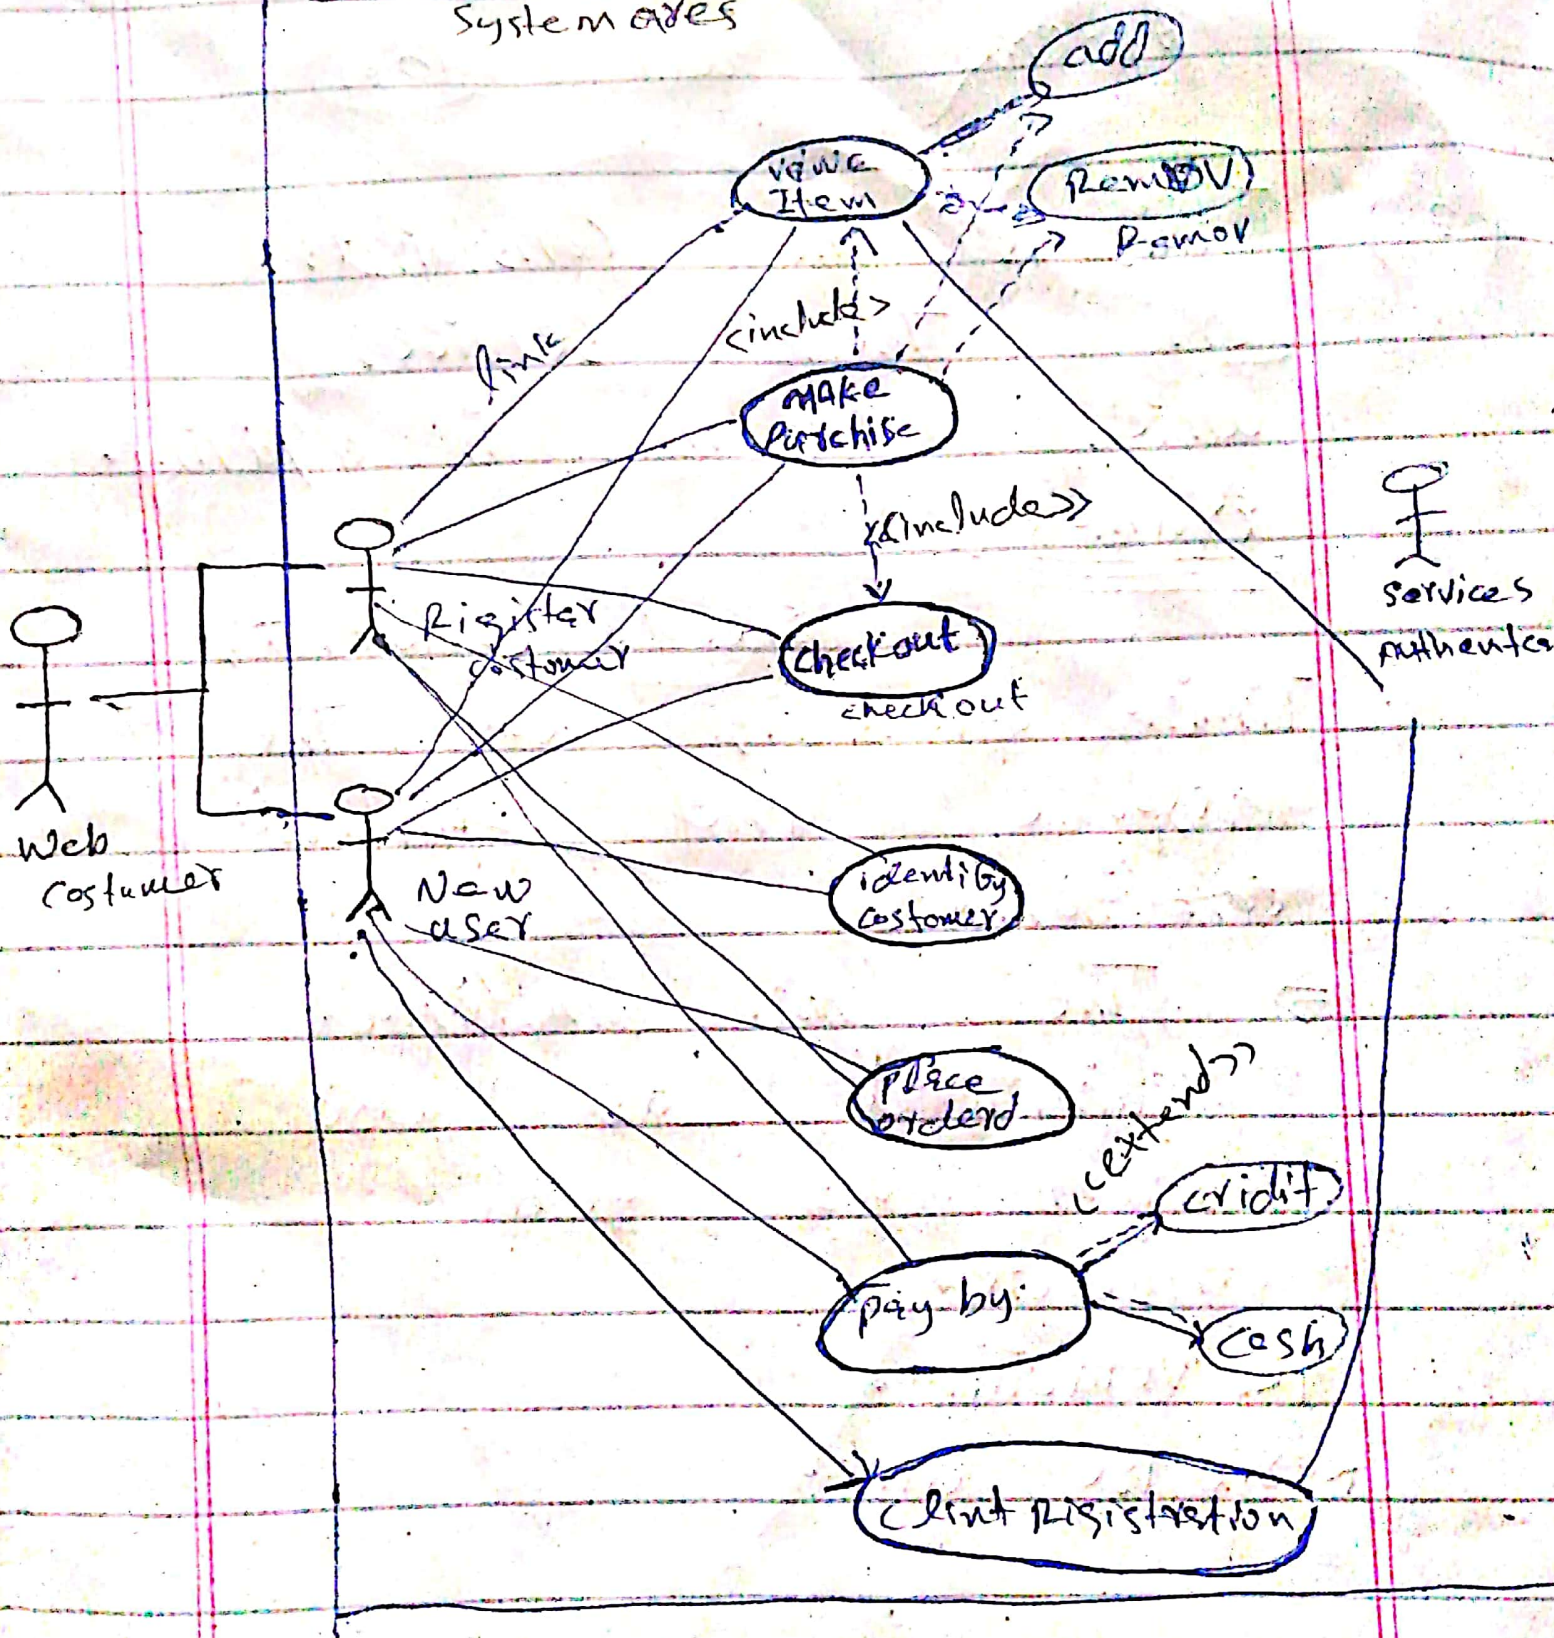 System ares
add
view
Item
Remov
Remov
link
<include>
make
purchise
<<include>>
services
Authentca
Rigister
costomer
checkout
checkout
Web
Costumer
New
user
identify
costomer
place
orderd
<<extend>>
cridit
pay by
cash
Clint Rigistration